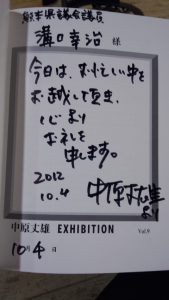 熊本県議会議長
溝口幸治 様
今日は、お忙しい中を
お越して頂き、
心より
お礼を
申します。
2012
10.4
中原丈雄
より
中原丈雄 EXHIBITION Vol.9
10月4日